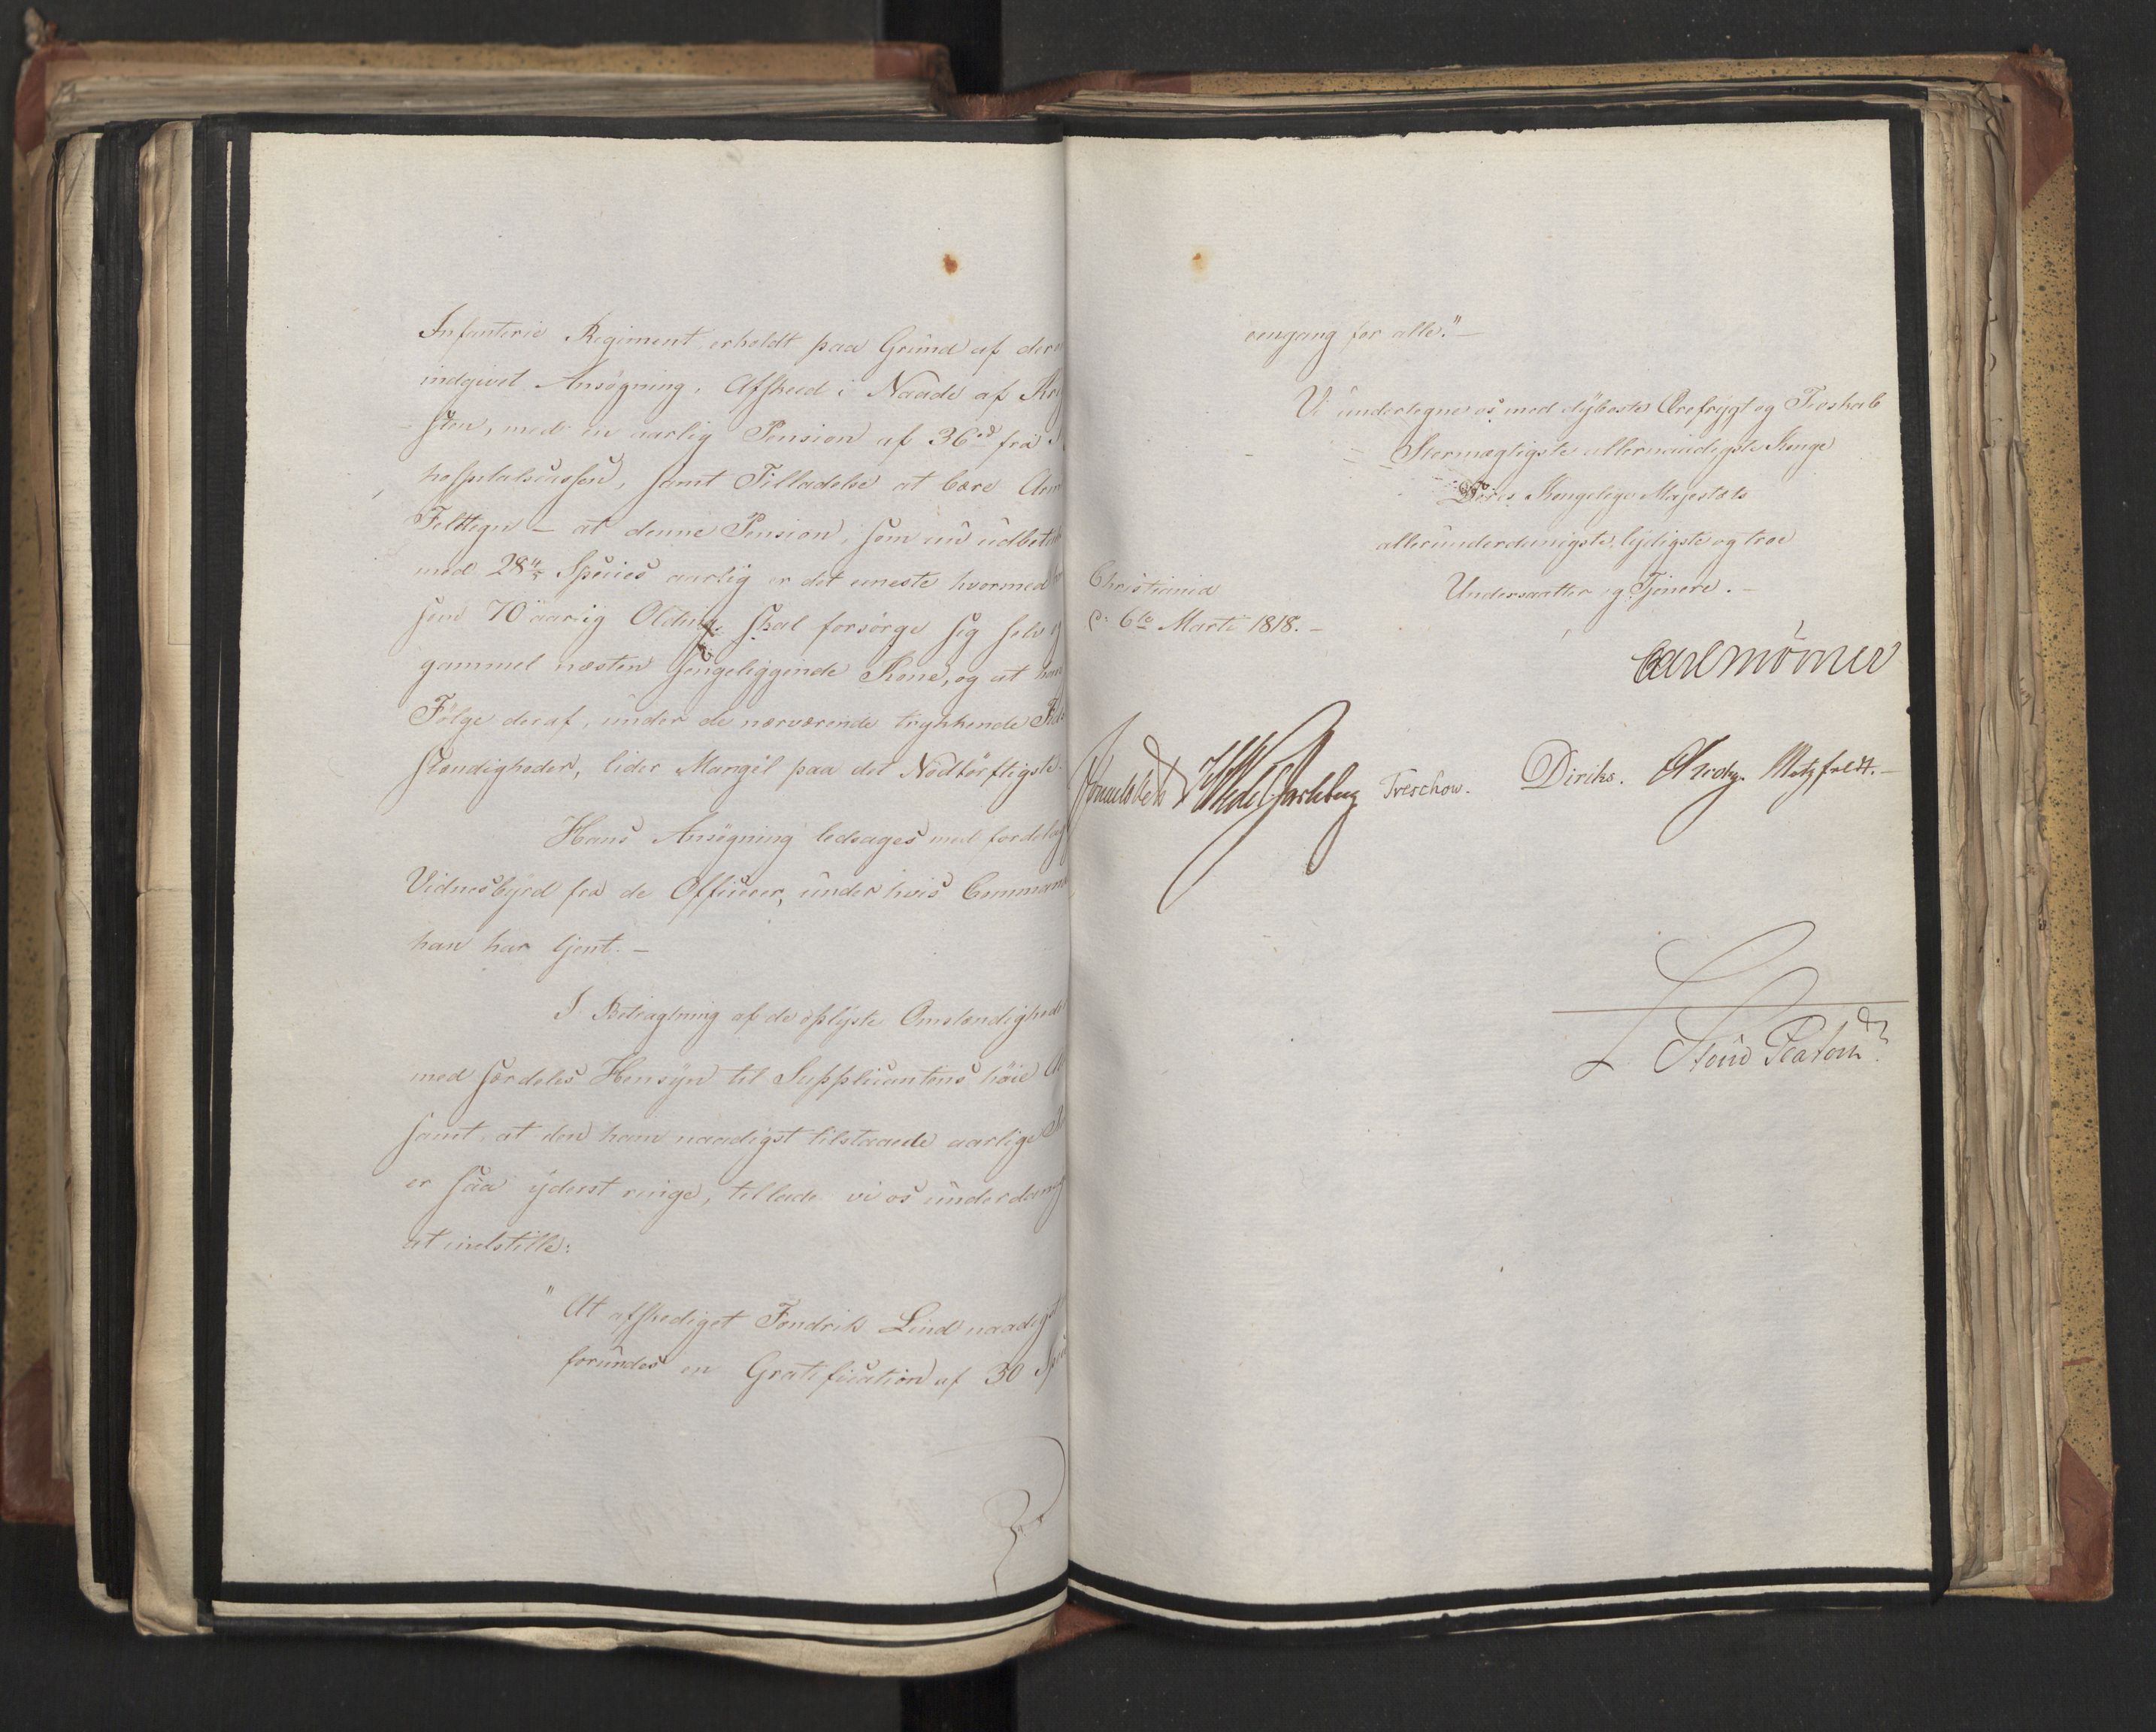 Infanterie Regiment erholdt paa Grund af derom
indgivet Ansøgning, Afskeed i Naade af Krigstjene
sten, med en aarlig Pension af 36 rd fra
hospitalscassen, samt Tilladelse at bære
Felttegn – at denne Pension, som nu udbetales
med 28 Species aarlig er det eneste hvormed han
som 70 aarig Olding skal forsørge sig selv og
gammel næsten sengeliggende Kone, og at han
Følge deraf, under de nærværende trykkende Tids
stændigheder, lider Mangel paa det Nødtørftigste.
Hans Ansøgning ledsages med fordelagtige
Vidnesbyrd fra de Officerer, under hvis Commando
han har tjent. –
I Betragtning af de oplyste Omstændigheder
med særdeles Hensyn til Supplicantens høie
samt, at den ham naadigst tilstaaede aarlige
er saa yderst ringe, tillade vi os underdanigst
at indstille:
" At afskediget Fændrik Lind naadigst
forundes en Gratification af 30 Species
eengang for alle." –
Vi undertegne os med dybeste Ærefrygt og Troskab
Stormægtigste allernaadigste Konge
Deres Kongelige Majestæts
allerunderdanigste, lydigste og troe
Undersaatter og Tjenere. –
Christiania
d: 6te Marti 1818. –
Carl Mörner
Hommelbech Wedel Jarlsberg Treschow. Diriks. Krohg. Motzfeldt. –